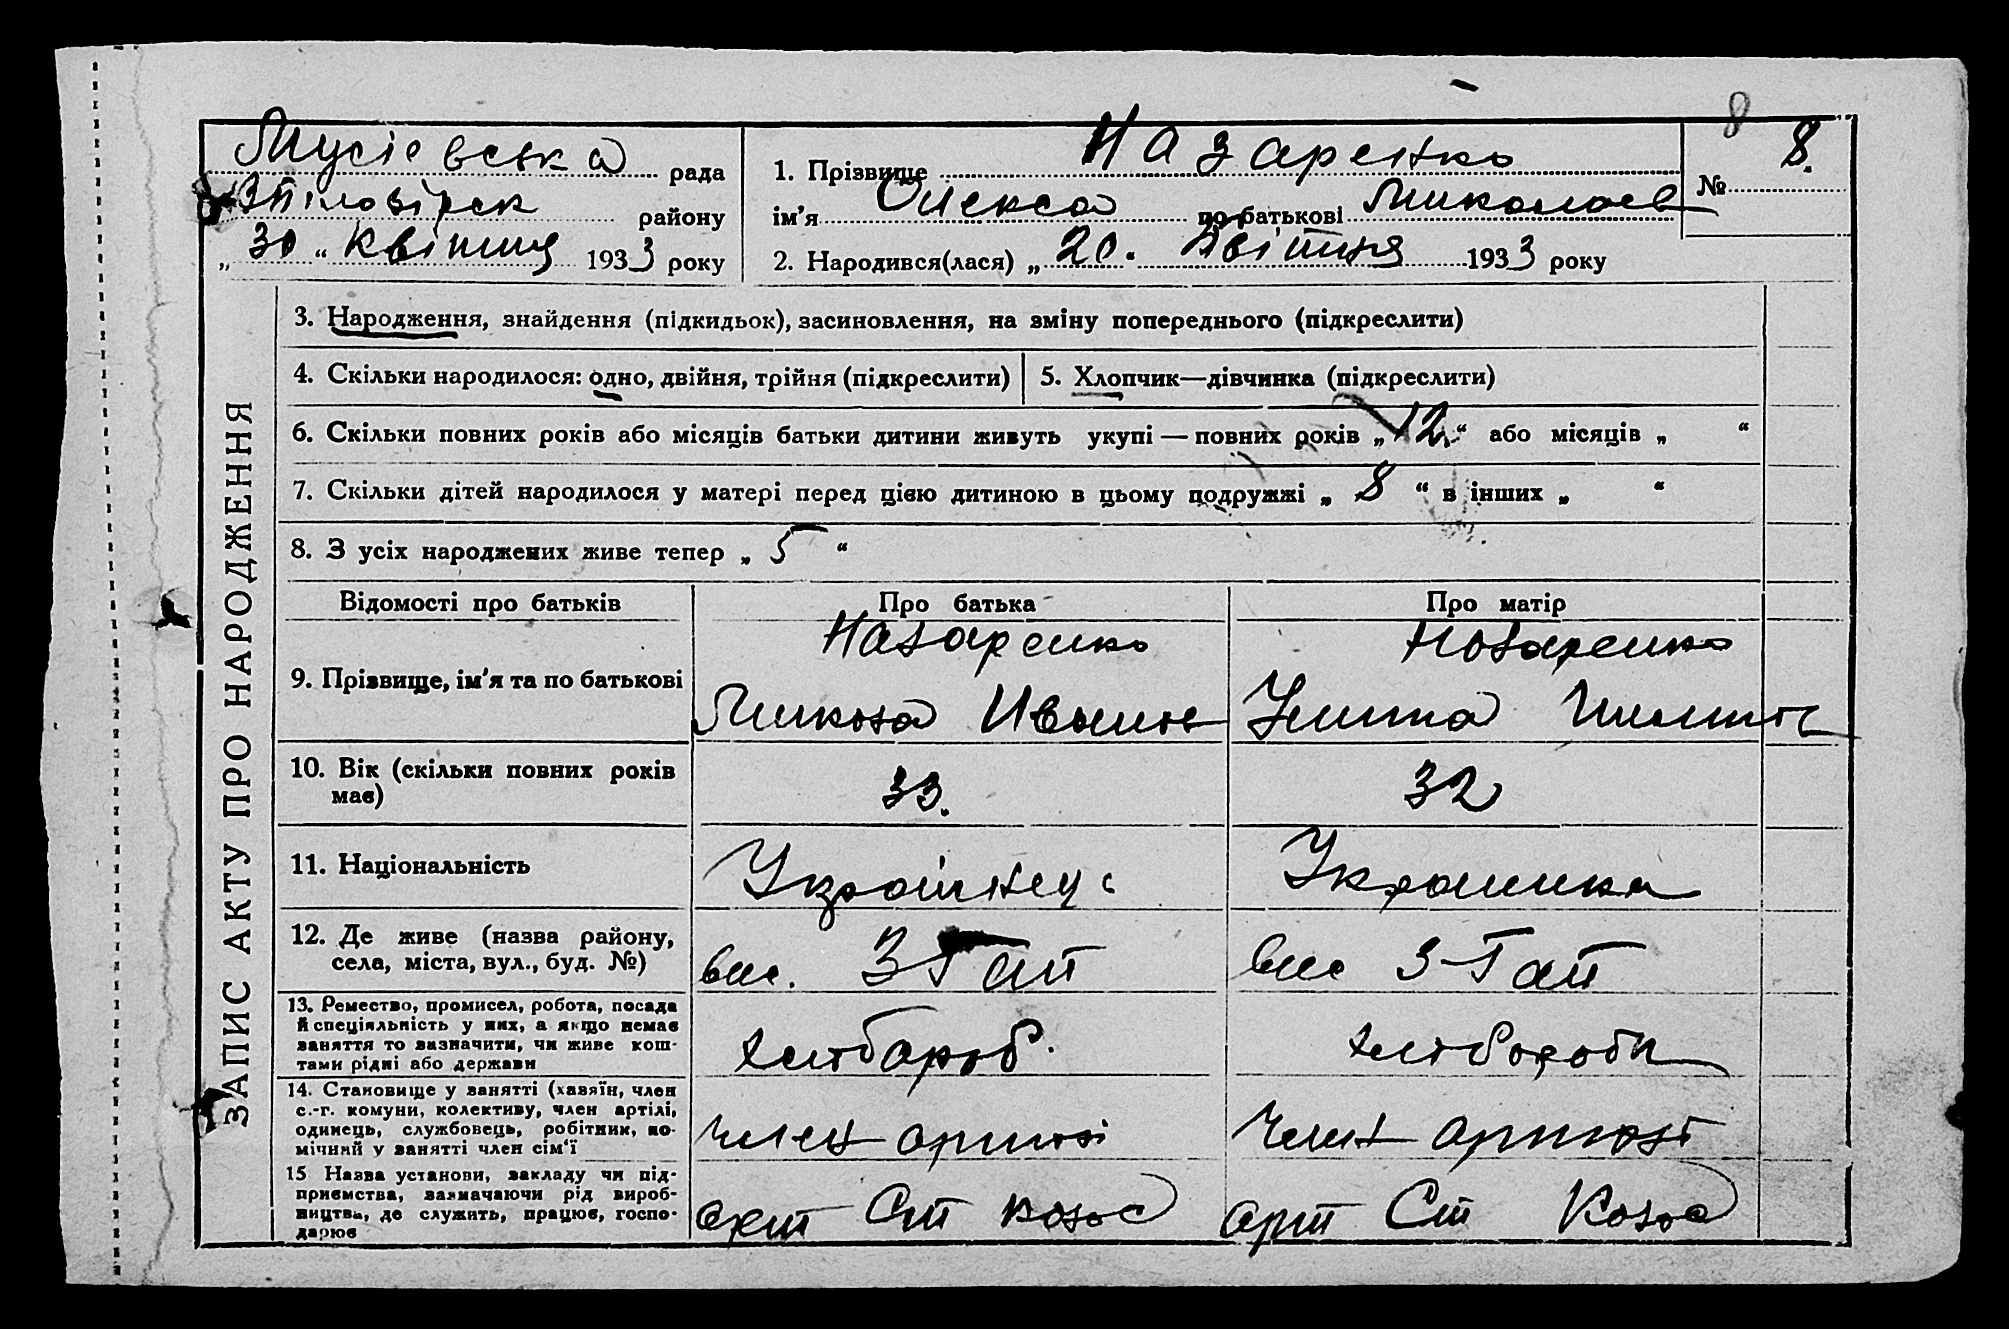 8
Мусієвська рада
районy
„ 30 “ Квітня 1933 року
1. Прізвище Назаренко
ім’я Олекса по батькові Миколаєв
2. Народився(лася) „ 20 “ Квітня 1933 року
№ 8.
ЗАПИС АКТУ ПРО НАРОДЖЕННЯ
3. Народження, знайдення (підкидьок), засиновлення, на зміну попереднього (підкреслити)
4. Скільки народилося: одно, двійня, трійня (підкреслити)
5. Хлопчик—дівчинка (підкреслити)
6. Скільки повних років або місяців батьки дитини живуть укупі — повних років „ 12 “ або місяців „ “
7. Скільки дітей народилося у матері перед цією дитиною в цьому подружжі „ 8 “ в інших „ “
8. З усіх народжених живе тепер „ 5 “
Відомості про батьків
Про батька
Про матір
9. Прізвище, ім’я та по батькові
Назаренко
Микола Иванов
Назаренко
10. Вік (скільки повних років
має)
33.
32
11. Національність
Українець
Украинка
12. Де живе (назва району,
села, міста, вул., буд. №)
13. Ремество, промисел, робота, посада
й спеціяльність у них, а якщо немає
заняття то вазначити, чи живе кош-
тами рідні або держави
хлібороб.
14. Становище у занятті (хазяїн, член
с.-г. комуни, колективу, член артілі,
одинець, службовець, робітник, по-
мічний у занятті член сім‘ї
член артілі
член артілі
15 Назва установи, закладу чи під-
приємства, зазначаючи рід вироб-
ництва, де служить, працює, госпо-
дарює
арт
арт